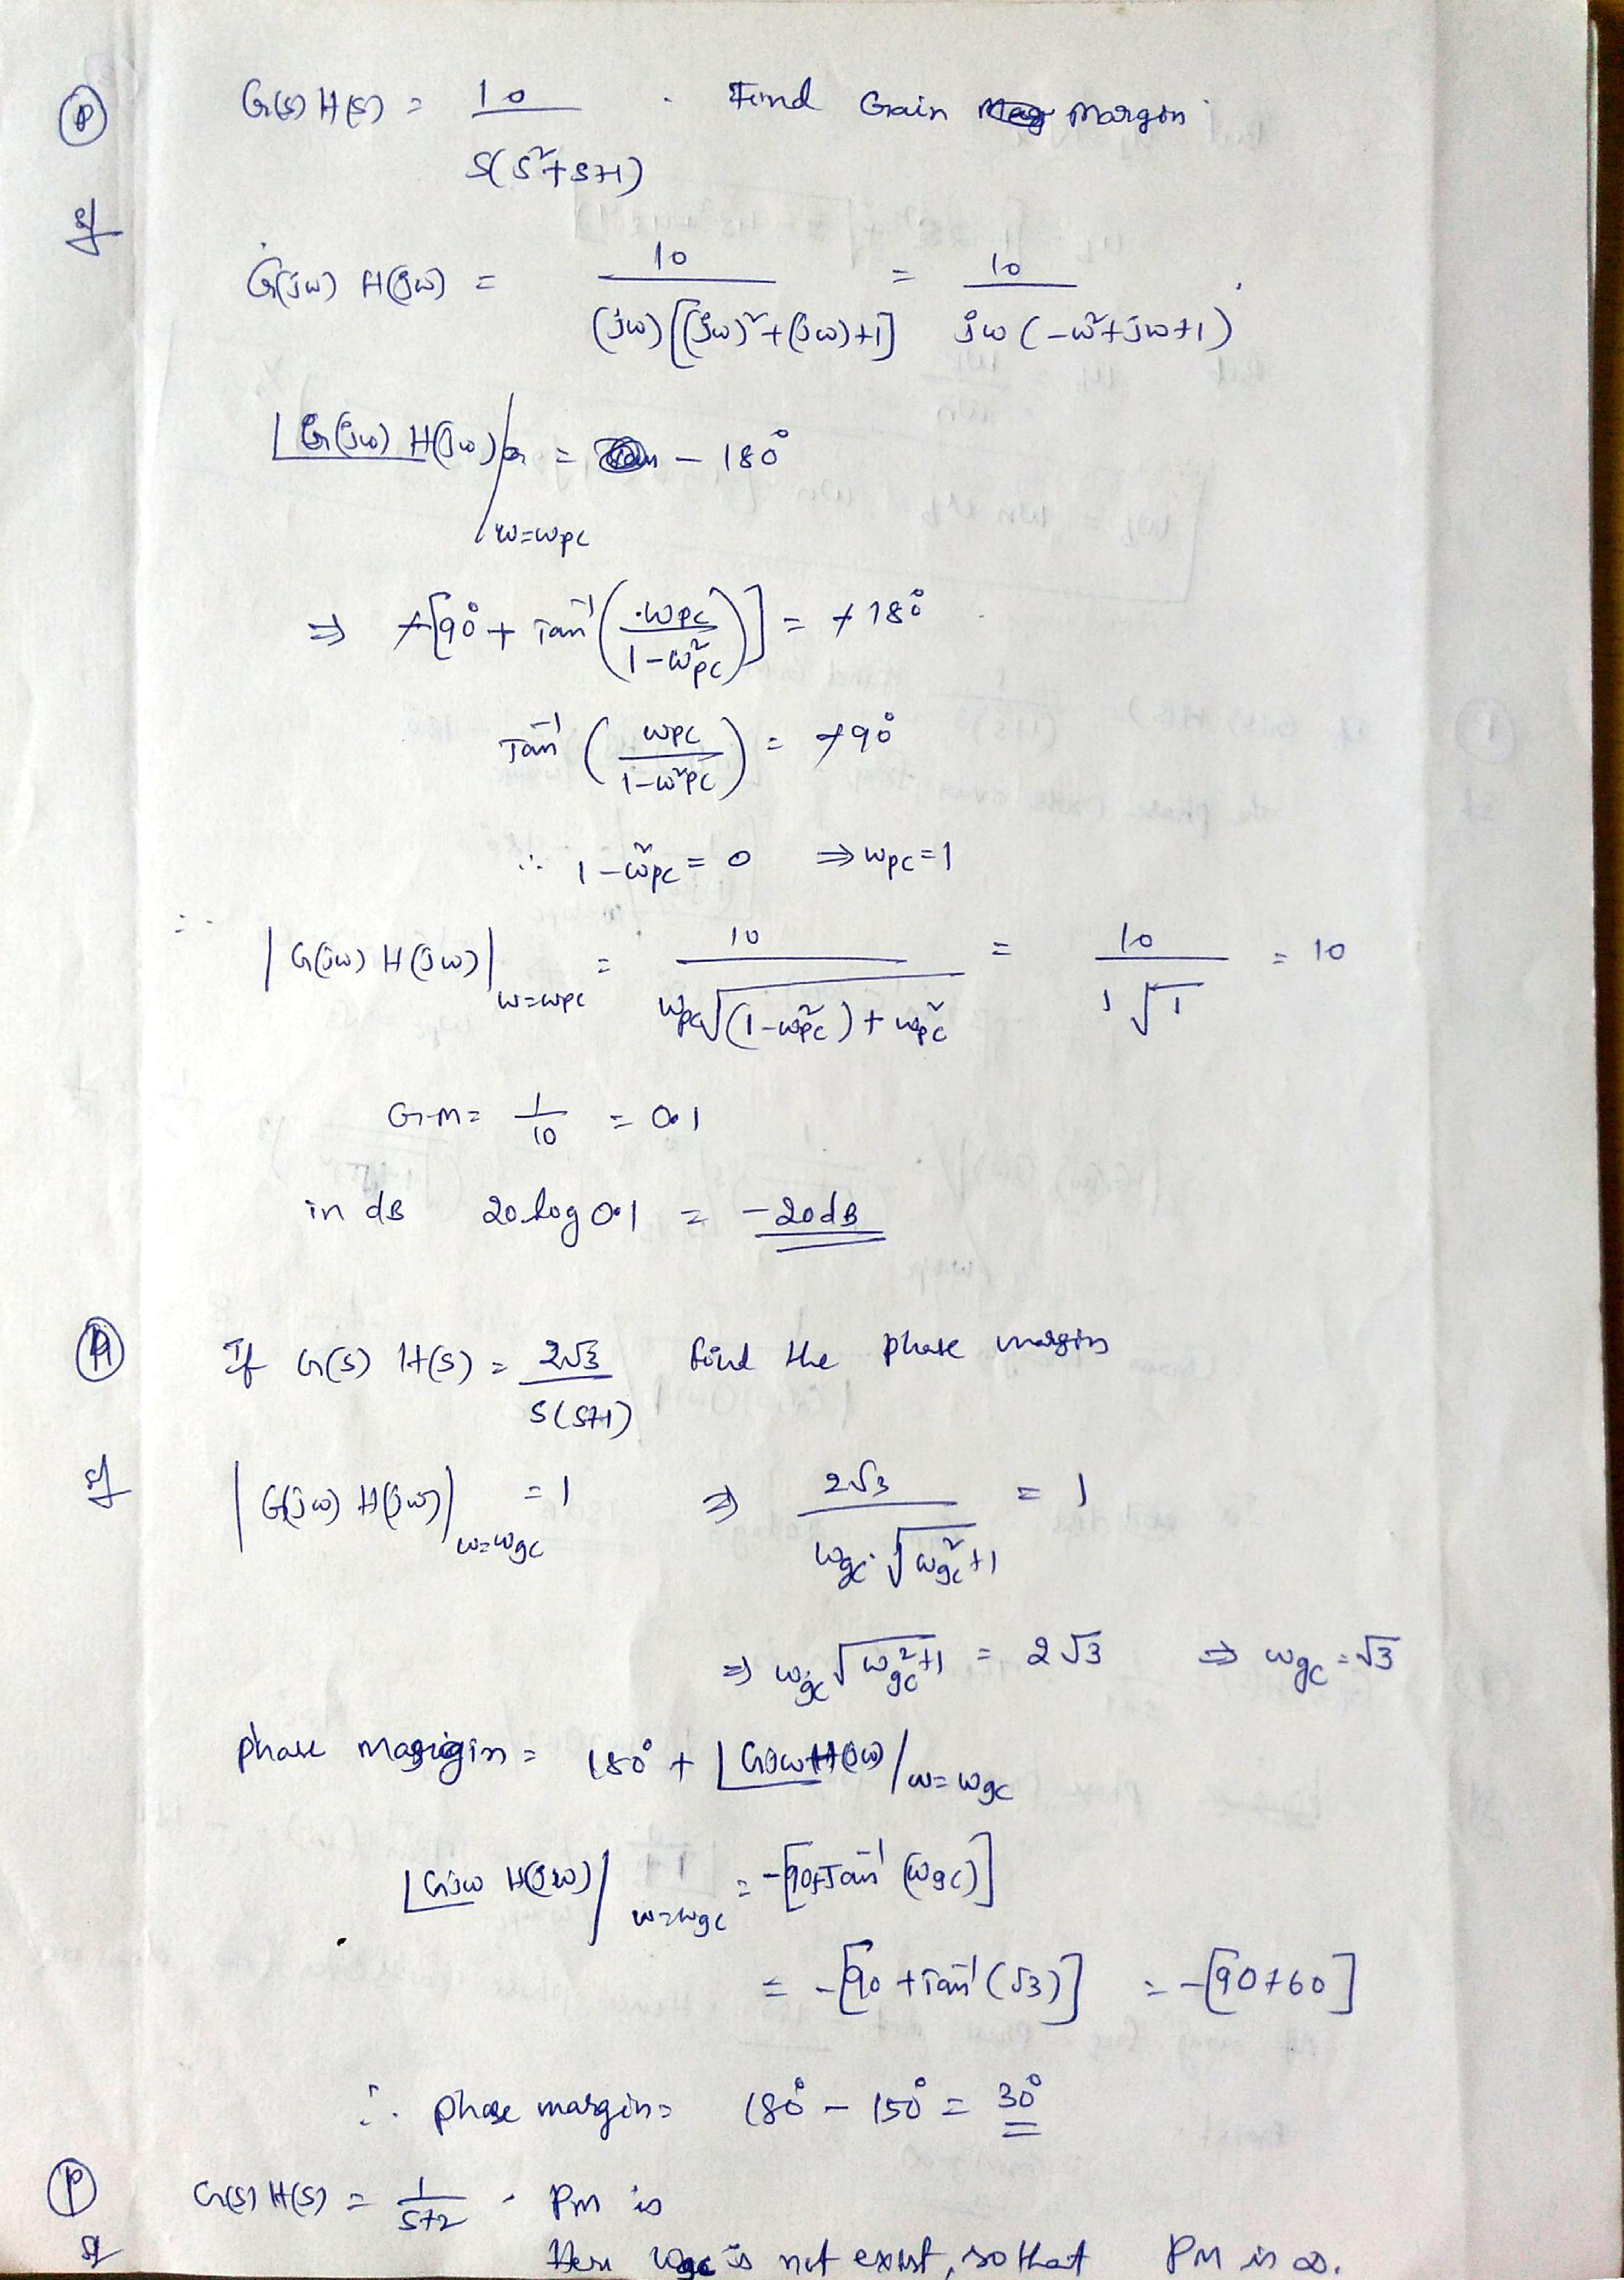 (P) G(s) H(s) = 10 / s(s²+s+1) . Find Gain Margin
Sol
G(jω) H(jω) = 10 / (jω)[(jω)²+(jω)+1] = 10 / jω(-ω²+jω+1)
∠G(jω) H(jω) / ω=ωpc = -180°
⇒ -[90° + Tan⁻¹(ωpc / 1-ω²pc)] = -180°
Tan⁻¹(ωpc / 1-ω²pc) = +90°
∴ 1-ω²pc = 0 ⇒ ωpc=1
∴ |G(jω) H(jω)| ω=ωpc = 10 / ωpc√(1-ω²pc)+ω²pc = 10 / 1√1 = 10
G·M = 1/10 = 0.1
in dB 20 log 0.1 = -20dB
(P) If G(s) H(s) = 2√3 / s(s+1) find the phase margin
Sol
|G(jω) H(jω)| ω=ωgc = 1 ⇒ 2√3 / ωgc·√ω²gc+1 = 1
⇒ ωgc √ωgc²+1 = 2√3 ⇒ ωgc = √3
phase margin = 180° + ∠GjωH(jω) / ω=ωgc
∠Gjω H(jω) / ω=ωgc = -[90+Tan⁻¹(ωgc)]
= -[90 + Tan⁻¹(√3)] = -[90+60]
∴ phase margin = 180° - 150° = 30°
(P) G(s) H(s) = 1 / s+2 . PM is
Sol Here ωgc is not exist, so that PM is ∞.